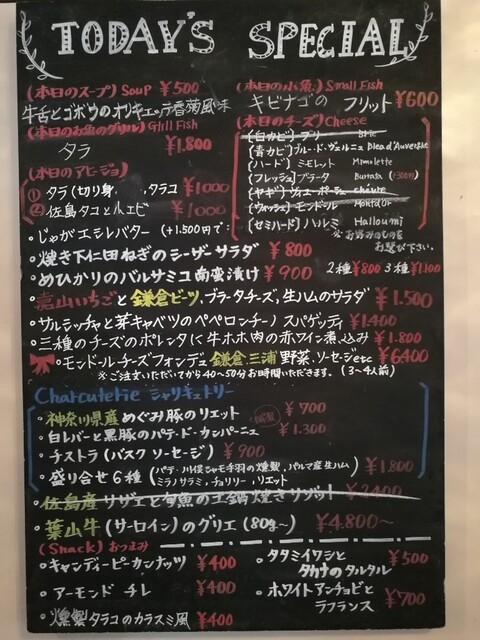 TODAY'S SPECIAL
(本日のスープ) Soup ¥500
牛舌とゴボウのオリキエッテ香菊風味
(本日のお魚のグリル) Grill Fish
タラ ¥1.800
(本日のアヒージョ)
① タラ(切り身、タラコ ¥1000
② 佐島タコと小エビ ¥1000
・じゃがエシレバター (+1.500円で)
(本日の小魚) Small Fish
キビナゴのフリット ¥600
(本日のチーズ) Cheese
(白カビ) ブリー Brie
(青カビ) ブルー・ド・ヴェルニュ Bleu d'Auvergne
(ハード) ミモレット Mimolette
(フレッシュ) ブラータ Burrata (+300円)
(ヤギ) chèvre
(ウォッシュ) モンドール Montd'or
(セミハード) ハルミ Halloumi
※お好みのものをお選び下さい。
2種 ¥800 3種 ¥1100
・焼き下仁田ねぎのシーザーサラダ ¥800
・めひかりのバルサミコ南蛮漬け ¥900
・嘉山いちごと鎌倉ビーツ、ブラータチーズ、生ハムのサラダ ¥1.500
・サルシッチャと芽キャベツのペペロンチーノ スパゲッティ ¥1.400
・三種のチーズのポレンタに牛ホホ肉の赤ワイン煮込み ¥1.800
・モンドールチーズフォンデュ 鎌倉三浦野菜、ソーセージetc ¥6400
※ご注文いただいてから40〜50分お時間いただきます。(3〜4人前)
Charcuterie シャリキュトリー
・神奈川県産めぐみ豚のリエット ¥700
・白レバーと黒豚のパテ・ド・カンパーニュ ¥1.300
・チストラ(バスク ソーセージ) ¥900
・盛り合せ6種 (パテ・川俣シャモ手羽の燻製、パルマ産生ハム ミラノサラミ、チョリソー、リエット) ¥1.800
・佐島産 サザエと旬魚の土鍋焼きリゾット ¥2400
・葉山牛(サーロイン)のグリエ (80g〜) ¥4.800〜
(Snack) おつまみ
・キャンディーピーカンナッツ ¥400
・アーモンド チレ ¥400
・燻製タラコのカラスミ風 ¥400
・タタミイワシとタカナのタルタル ¥500
・ホワイトアンチョビとラフランス ¥700